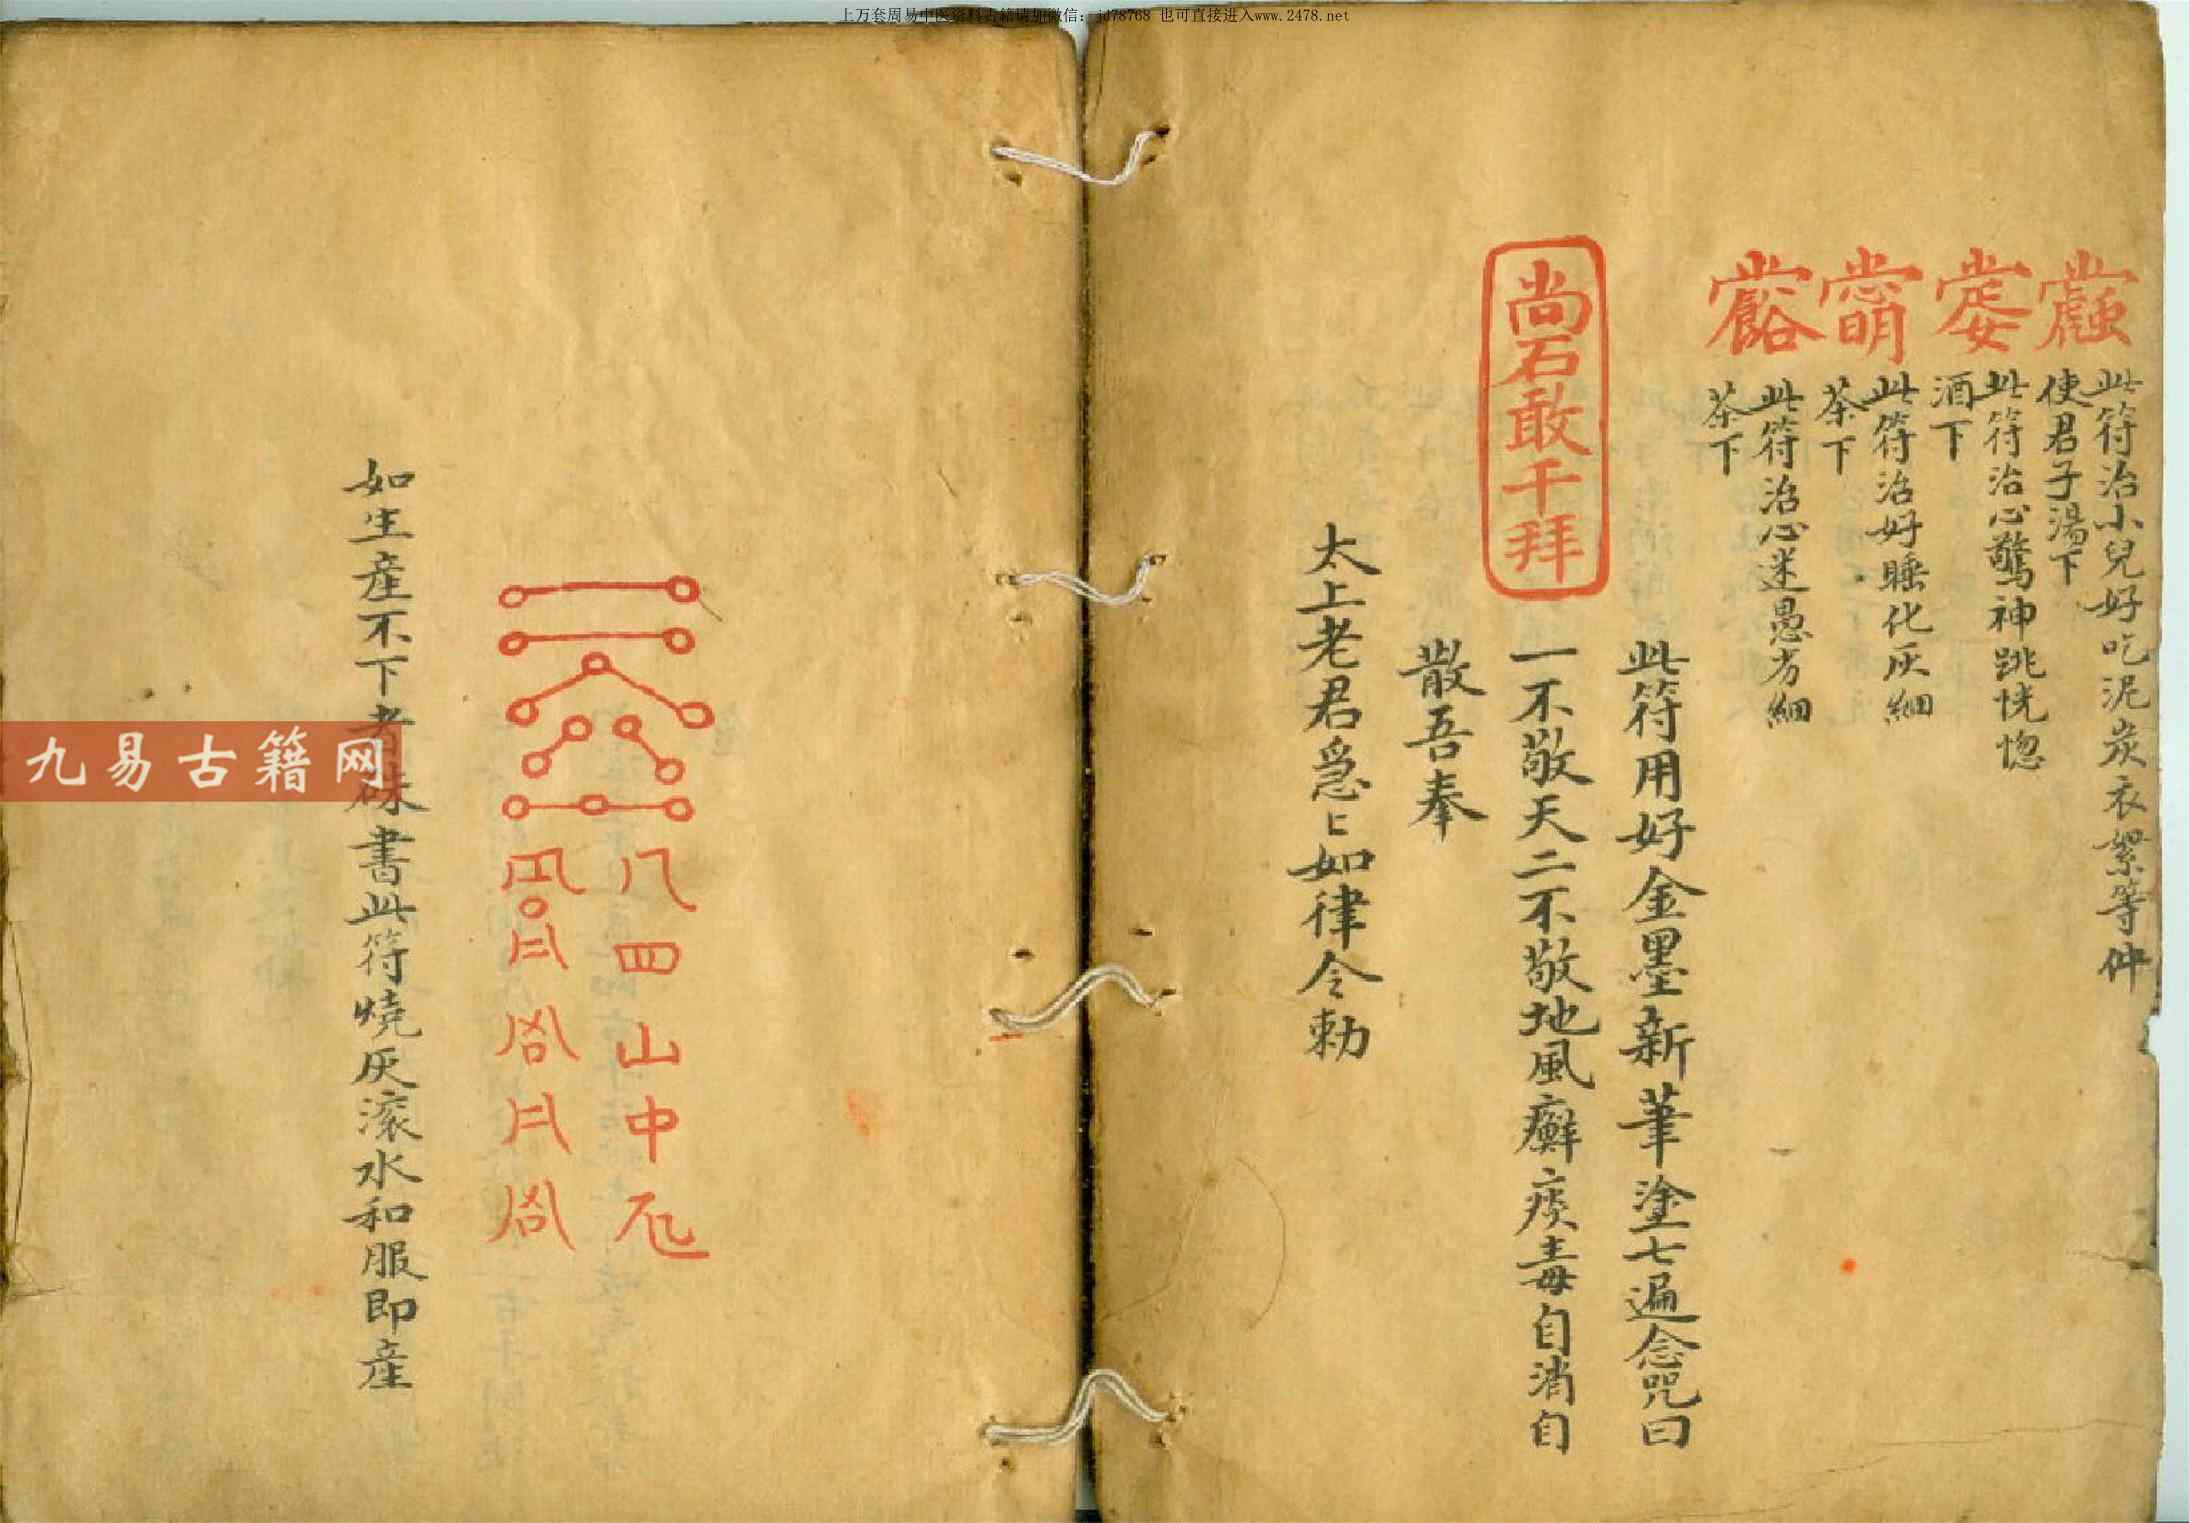 上万套周易中医资料古籍请加微信：jd78768 也可直接进入www.2478.net
此符治小兒好吃泥炭衣絮等仲
使君子湯下
此符治心驚神跳恍惚
酒下
此符治好睡化灰細
茶下
此符治心迷愚方細
茶下
尚石敢干拜
此符用好金墨新筆塗七遍念咒曰
一不敬天二不敬地風癬痰毒自消自
散吾奉
太上老君急〻如律令勅
八四山中
如生產不下者硃書此符燒灰滚水和服即產
九易古籍网